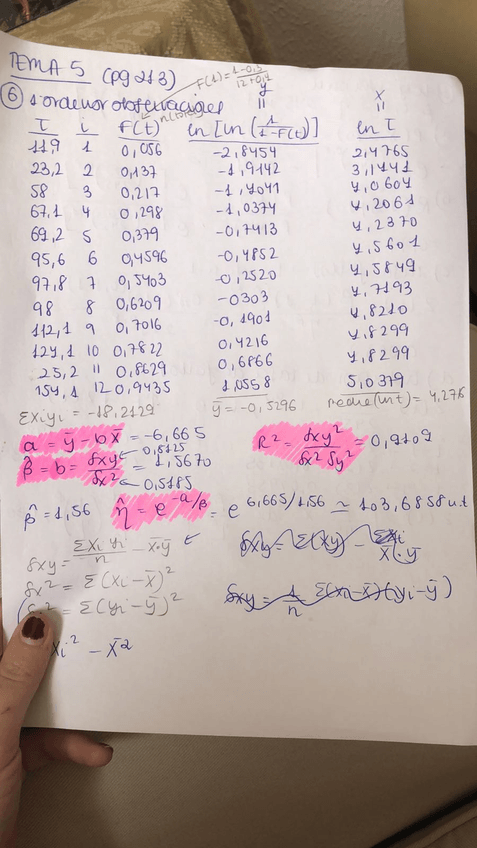 TEMA 5 (pg 213)
F(1) = 1-0,3 / 12+0,4
6 1 ordenar observaciones
y = x =
T i F(t) ln[ln(1/1-F(t))] ln T
11,9 1 0,056 -2,8454 2,4765
23,2 2 0,137 -1,9142 3,1441
58 3 0,217 -1,4041 4,0604
67,1 4 0,298 -1,0374 4,2061
69,2 5 0,379 -0,7413 4,2370
95,6 6 0,4596 -0,4852 4,5601
97,8 7 0,5403 -0,2520 4,5849
98 8 0,6209 -0303 4,7193
112,1 9 0,7016 -0,1901 4,8210
124,1 10 0,7822 0,4216 4,8299
25,2 11 0,8629 0,6866 4,8299
154,1 12 0,9435 1,0558 5,0379
Σxiyi = -18,2129 ȳ = -0,5296 media(ln t) = 4,276
a = ȳ - b x̄ = -6,665
β̂ = b = Sxy/Sx² = 0,8125/0,5185 = 1,5670
R² = Sxy²/Sx² Sy² = 0,9109
β̂ = 1,56 η̂ = e^-a/β = e^6,665/1,56 ≃ 103,6858 u.t
Sxy = Σxi yi/n - x̄·ȳ
Sxy = Σ(xy) - Σxi/x̄·ȳ
Sx² = Σ(xi - x̄)²
² = Σ(yi - ȳ)²
Sxy = 1/n Σ(xi - x̄)(yi - ȳ)
xi² - x̄²